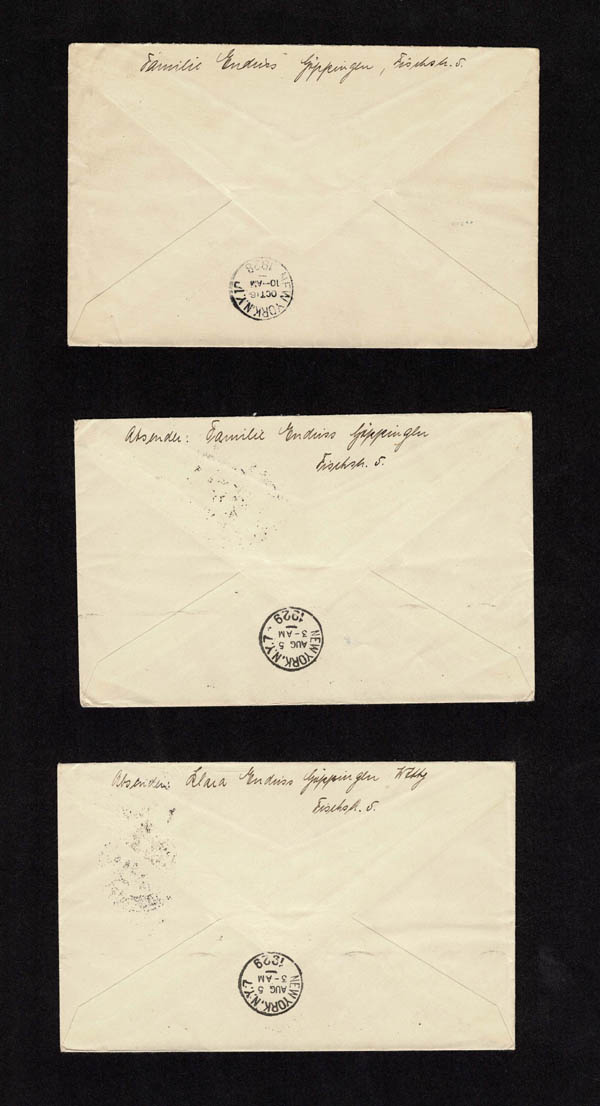 Familie Enduss Göppingen, Fischstr. 5.
NEW YORK, N.Y.
OCT 16
10-AM
1929
Absender: Familie Enduss Göppingen
Fischstr. 5.
NEW YORK, N.Y. 7
AUG 5
3-AM
1929
Absenderin: Klara Enduss Göppingen Wttbg
Fischstr. 5.
NEW YORK, N.Y. 7
AUG 5
3-AM
1929